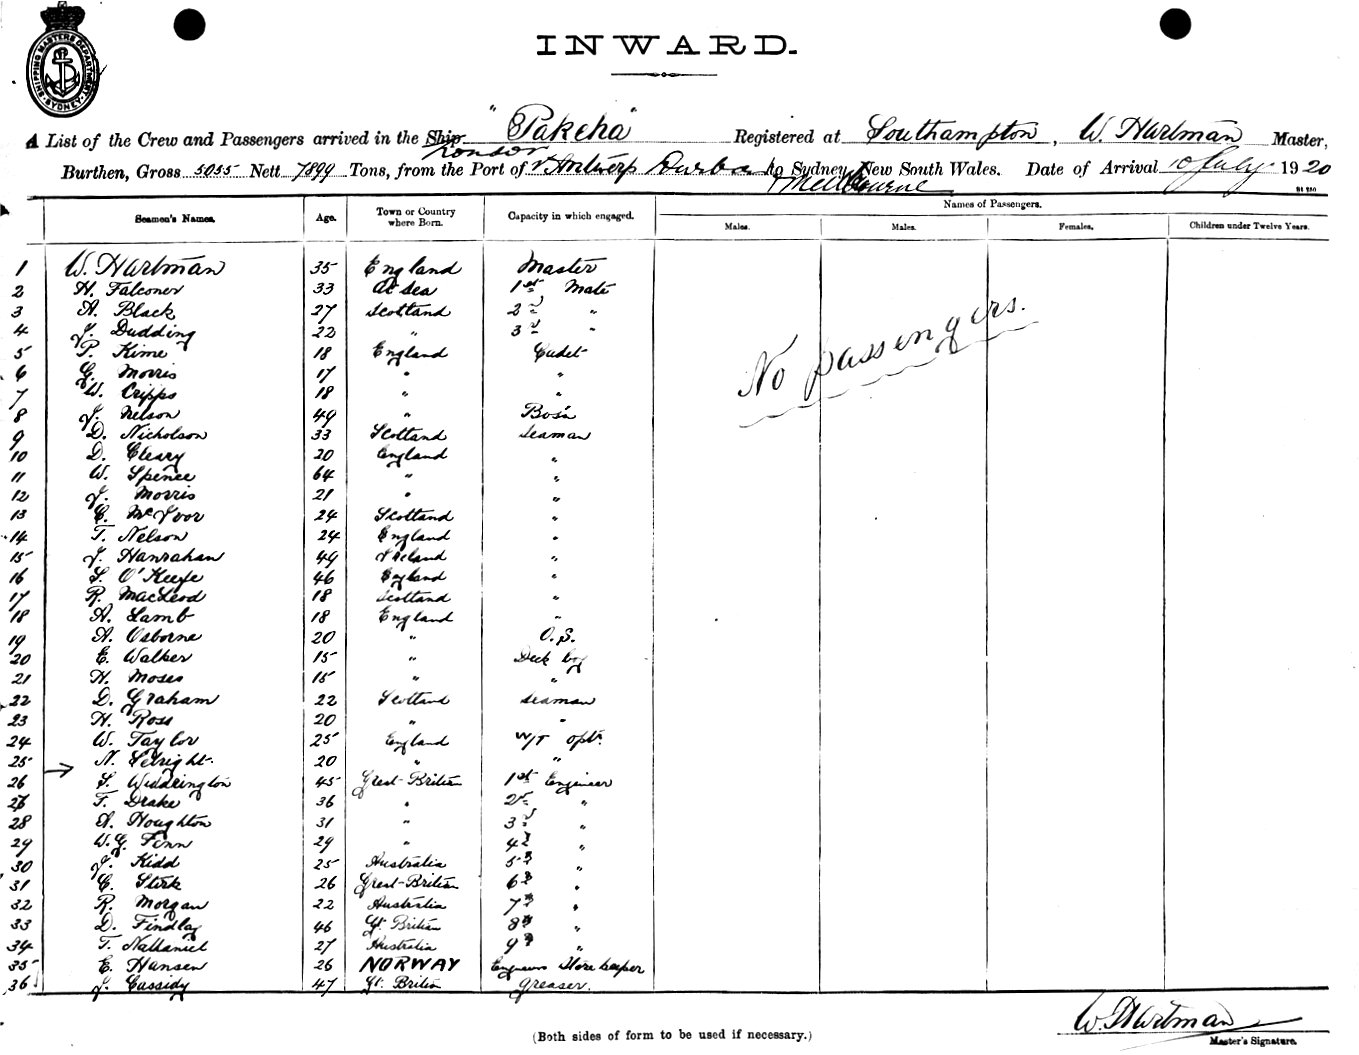 SHIPPING MASTERS DEPARTMENT SYDNEY
INWARD.
A List of the Crew and Passengers arrived in the Ship "Pakeha" Registered at Southampton, W. Hartman Master,
London
Burthen, Gross 5055 Nett 7899 Tons, from the Port of Antwerp Durban to Sydney, New South Wales. Date of Arrival 10 July 1920
Melbourne
Seamen's Names. Age. Town or Country where Born. Capacity in which engaged. Names of Passengers.
Males. Males. Females. Children under Twelve Years.
1 W. Hartman 35 England Master
2 H. Falconer 33 At Sea 1st Mate
3 A. Black 27 Scotland 2nd "
4 J. Dudding 22 " 3rd "
5 P. Kime 18 England Cadet
6 G. Morris 17 " "
7 W. Cripps 18 " "
8 J. Nelson 49 " Bos'n
9 D. Nicholson 33 Scotland Seaman
10 D. Cleary 20 England "
11 W. Spence 64 " "
12 J. Morris 21 " "
13 C. McIvor 24 Scotland "
14 T. Nelson 24 England "
15 J. Hanrahan 49 Ireland "
16 S. O'Keefe 46 England "
17 R. MacLeod 18 Scotland "
18 A. Lamb 18 England "
19 A. Osborne 20 " O.S.
20 E. Walker 15 " Deck boy
21 H. Moses 15 " "
22 D. Graham 22 Scotland Seaman
23 H. Ross 20 " "
24 W. Taylor 25 England W/T Opt.
25 N. Setright 20 " "
26 S. Widdrington 45 Great Britian 1st Engineer
26 T. Drake 36 " 2nd "
28 A. Houghton 31 " 3rd "
29 W.G. Finn 29 " 4th "
30 J. Kidd 25 Australia 5th "
31 C. Stirk 26 Great Britian 6th "
32 R. Morgan 22 Australia 7th "
33 D. Findlay 46 Gt. Britian 8th "
34 T. Nathaniel 27 Australia 9th "
35 E. Hansen 26 NORWAY Engineers Storekeeper
36 J. Cassidy 47 Gt. Britian Greaser.
No passengers.
W. Hartman
Master's Signature.
(Both sides of form to be used if necessary.)